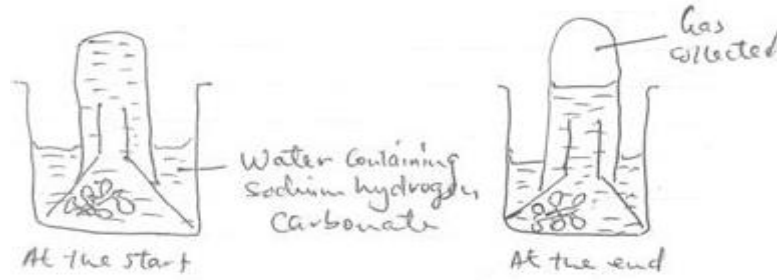 Gas
collected
Water Containing
Sodium hydrogen
Carbonate
At the start
At the end